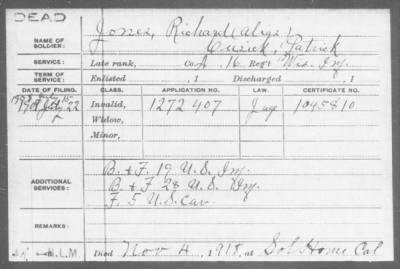 DEAD
NAME OF SOLDIER: Jones, Richard (Alias)
Cusick, Patrick
SERVICE: Late rank, Co A. 16 Reg't Wis. Inf.
TERM OF SERVICE: Enlisted , 1 Discharged , 1
DATE OF FILING. CLASS. APPLICATION NO. LAW. CERTIFICATE NO.
July 22 Invalid, 1272 407 1045810
Widow,
Minor,
ADDITIONAL SERVICES: B. & F. 19 U.S. Inf.
B & F 28 U.S. Inf.
F. 5 U.S. Cav.
REMARKS:
N.L.M. Died Nov 4, 1918, at Sol Home Cal